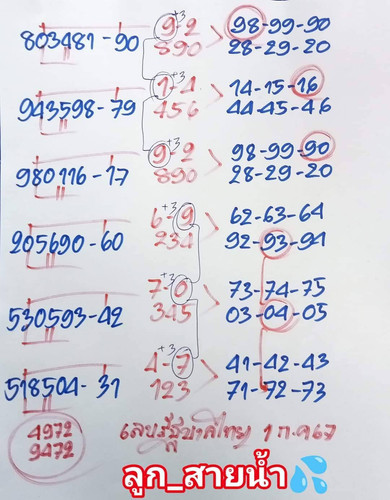 +3
9-2 98-99-90
803481-90 890 28-29-20
+3
1-4 14-15-16
943598-79 456 44-45-46
+3
9-2 98-99-90
980116-17 890 28-29-20
+3
6-9 62-63-64
205690-60 234 92-93-94
+3
7-0 73-74-75
530593-42 345 03-04-05
+3
4-7 41-42-43
518504-31 123 71-72-73
4972 เลขรัฐบาลไทย 1 ก.ค 67
9472
ลูก_สายน้ำ💦